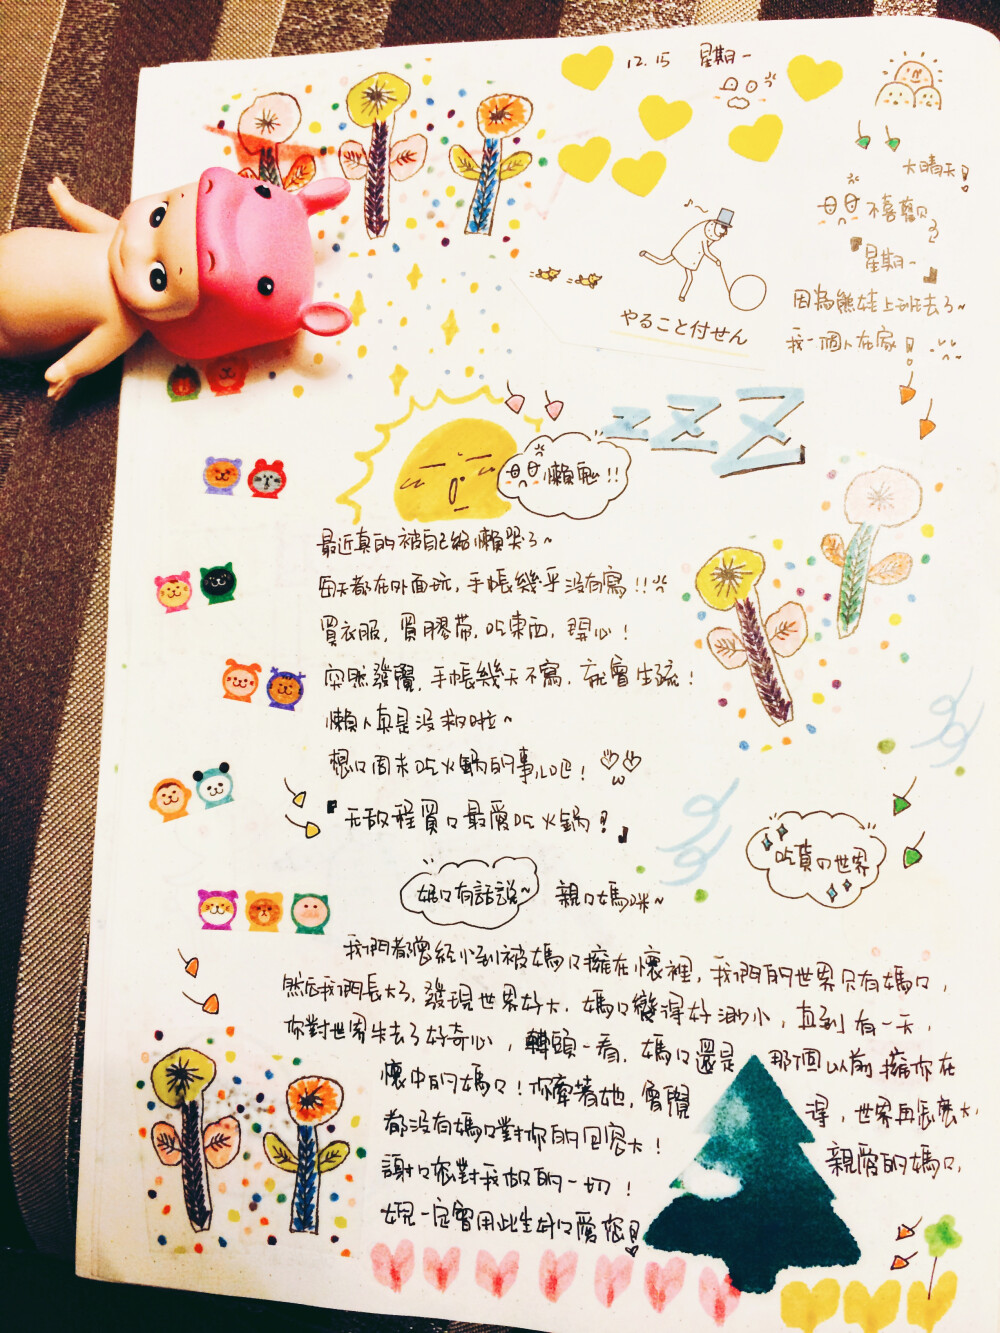 12.15 星期一
大晴天!
不喜歡
『星期一』
因為熊娃上班去了~
我一個人在家!
やること付せん
zZZ
懶鬼!!
最近真的被自己給懶哭了~
每天都在外面玩,手帳幾乎没有寫!!
買衣服,買膠帶,吃東西,開心!
突然發覺,手帳幾天不寫,就會生疏!
懶人真是没救啦~
想口周末吃火鍋的事儿吧!
『无敌程買口最愛吃火鍋!』
吃貨の世界
媽口有話說~
親口媽咪~
我們都曾經小到被媽口擁在懷裡,我們的世界只有媽口,
然后我們長大了,發現世界好大,媽口變得好渺小,直到有一天,
你對世界失去了好奇心,轉頭一看,媽口還是那個以前擁你在
懷中的媽口!你牽著她,會覺得,世界再怎麼大,
都没有媽口對你的包容大!
親愛的媽口,
謝口您對我做的一切!
一定會用此生好口愛您!